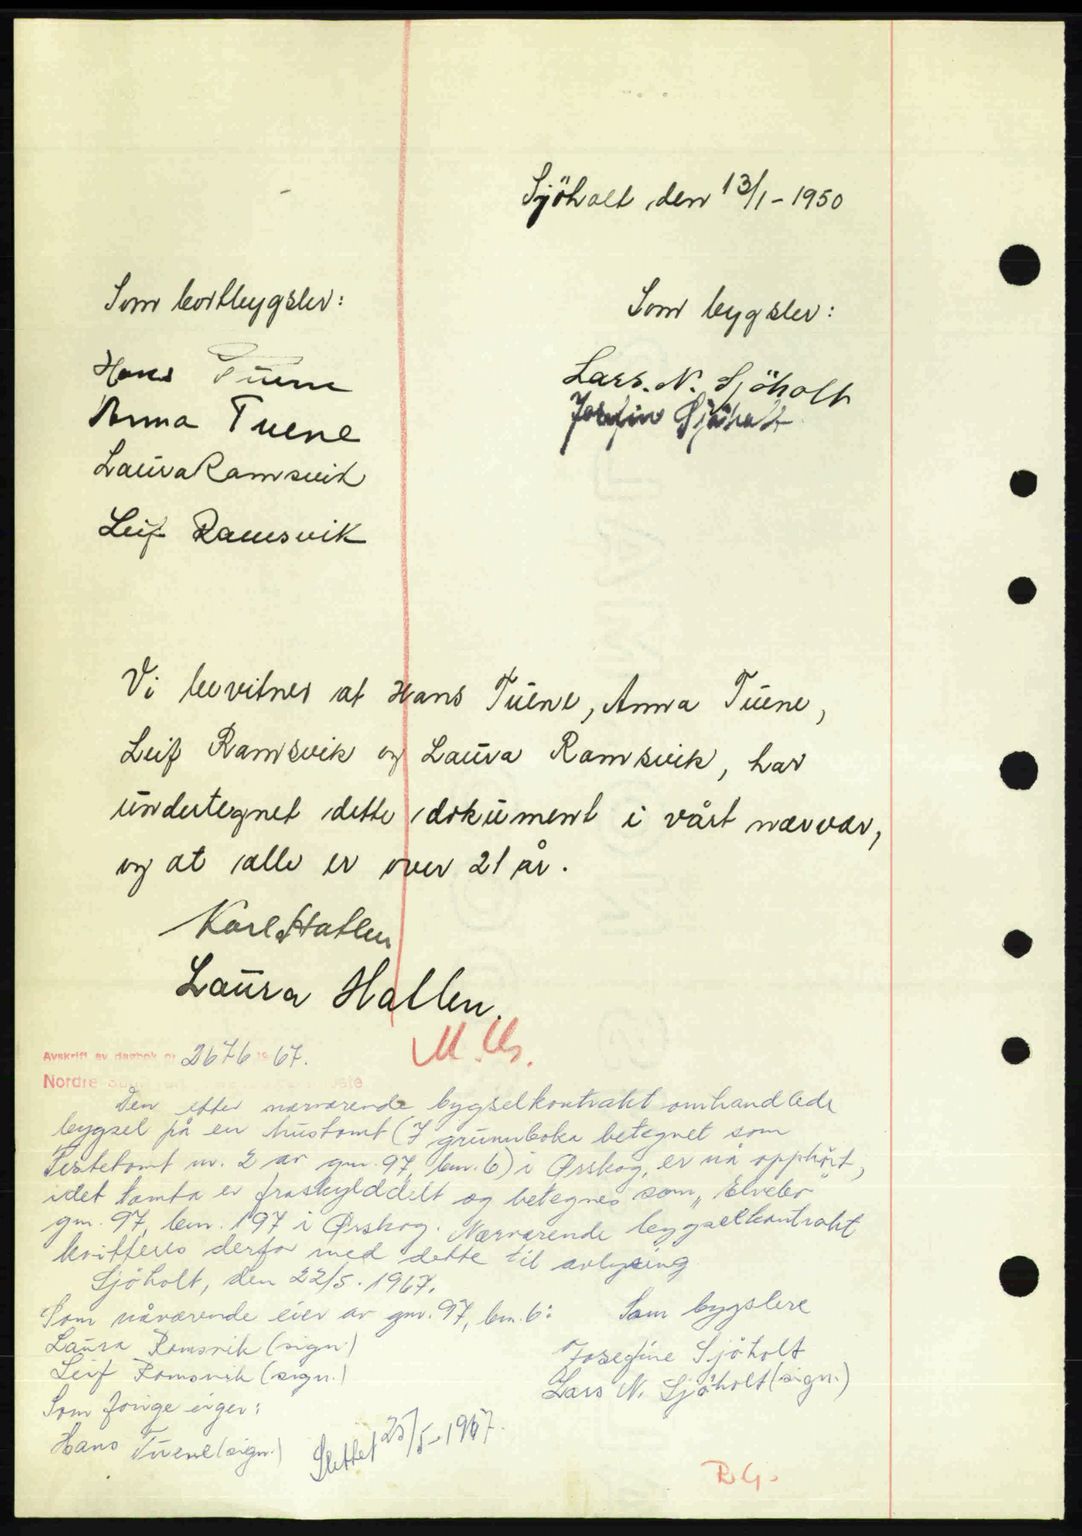 Sjöholt den 13/1 - 1950
Som bortbygsler:
Hans Tuene
Anna Tuene
Laura Ramsvik
Leif Ramsvik
Som bygsler:
Lars. N. Sjöholt
Josefine Sjøholt
Vi bevitner at Hans Tuene, Anna Tuene,
Leif Ramsvik og Laura Ramsvik, har
undertegnet dette dokument i vårt nærvær,
og at alle er over 21 år.
Karl Hatlen
Laura Hatlen.
M.Us.
Avskrift av dagbok nr 2676 19 67.
Nordre
Den etter nærværende bygselkontrakt omhandlede
bygsel på en hustomt (I grunnboka betegnet som
Festetomt nr. 2 av gnr. 97, bnr. 6) i Ørskog, er nå opphört,
idet tomta er fraskylddelt og betegnes som "Elvebo"
gnr. 97, bnr. 197 i Ørskog. Nærværende bygselkontrakt
kvitteres derfor med dette til avlysing
Sjöholt, den 22/5. 1967.
Som nåværende eier av gnr. 97, bnr. 6:
Laura Ramsvik (sign.)
Leif Ramsvik (sign.)
Som forige eiger:
Hans Tuene (sign.)
Som bygslere
Josefine Sjöholt
Lars N. Sjöholt (sign.)
Slettet 25/5-1967.
R.G.